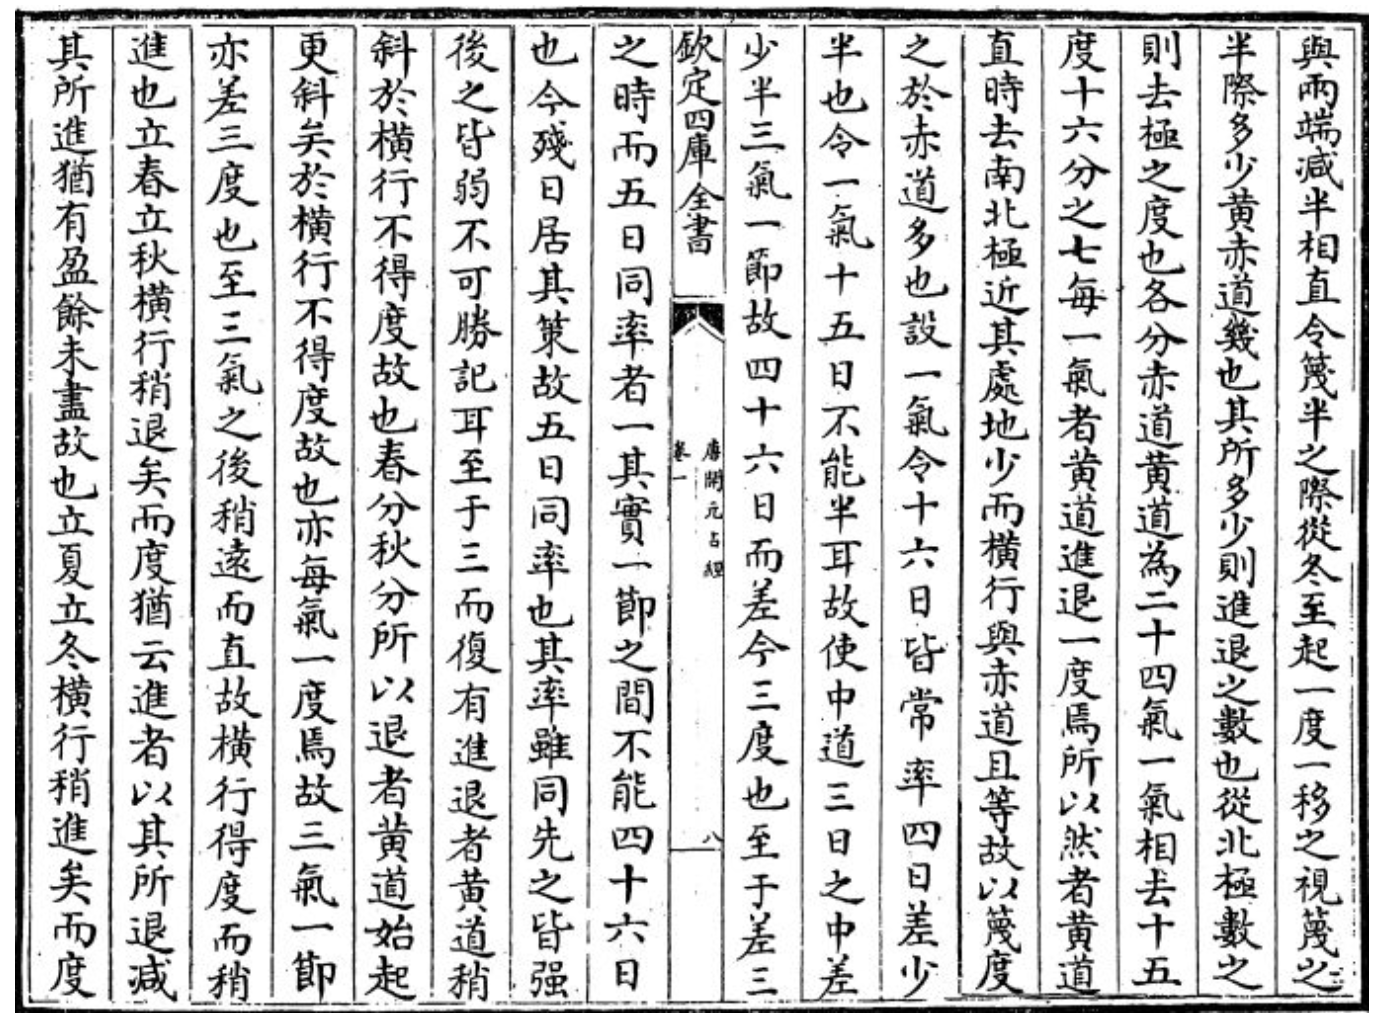 與兩端減半相直令篾半之際從冬至起一度一移之視篾之
半際多少黄赤道幾也其所多少則進退之數也從北極數之
則去極之度也各分赤道黄道為二十四氣一氣相去十五
度十六分之七每一氣者黄道進退一度焉所以然者黄道
直時去南北極近其處地少而横行與赤道且等故以篾度
之於赤道多也設一氣令十六日皆常率四日差少
半也令一氣十五日不能半耳故使中道三日之中差
少半三氣一節故四十六日而差今三度也至于差三
欽定四庫全書
唐開元占經
卷一
八
之時而五日同率者一其實一節之間不能四十六日
也今殘日居其策故五日同率也其率雖同先之皆强
後之皆弱不可勝記耳至于三而復有進退者黄道稍
斜於横行不得度故也春分秋分所以退者黄道始起
更斜矣於横行不得度故也亦每氣一度焉故三氣一節
亦差三度也至三氣之後稍遠而直故横行得度而稍
進也立春立秋横行稍退矣而度猶云進者以其所退減
其所進猶有盈餘未盡故也立夏立冬横行稍進矣而度